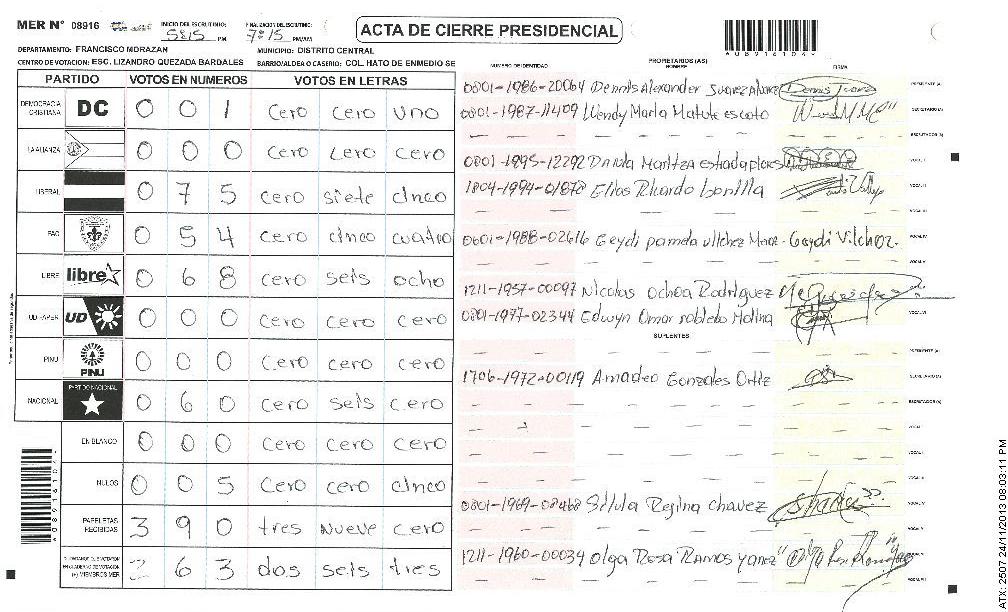 MER N° 08916 INICIO DEL ESCRUTINIO: 5:15 PM FINALIZACION DEL ESCRUTINIO: 7:15 PM/AM ACTA DE CIERRE PRESIDENCIAL A0891610
DEPARTAMENTO: FRANCISCO MORAZAN MUNICIPIO: DISTRITO CENTRAL
CENTRO DE VOTACION: ESC. LIZANDRO QUEZADA BARDALES BARRIO/ALDEA O CASERIO: COL. HATO DE ENMEDIO SE
PARTIDO VOTOS EN NUMEROS VOTOS EN LETRAS
DEMOCRACIA CRISTIANA DC 0 0 1 cero cero uno
LA ALIANZA 0 0 0 cero cero cero
LIBERAL 0 7 5 cero siete cinco
PAC 0 5 4 cero cinco cuatro
LIBRE libre 0 6 8 cero seis ocho
UD-FAPER UD 0 0 0 cero cero cero
PINU PINU 0 0 0 cero cero cero
NACIONAL PARTIDO NACIONAL 0 6 0 cero seis cero
EN BLANCO 0 0 0 cero cero cero
NULOS 0 0 5 cero cero cinco
PAPELETAS RECIBIDAS 3 9 0 tres nueve cero
2 6 3 dos seis tres
NUMERO DE IDENTIDAD PROPIETARIOS (AS) NOMBRE FIRMA
0001-1986-20064 Dennis Alexander Suarez Alvarez PRESIDENTE (A)
0001-1987-11409 Wendy Maria Matute escoto SECRETARIO (A)
ESCRUTADOR (A)
0001-1995-12292 Daniela Maritza estrada flores VOCAL I
1804-1994-01878 Elias Ricardo bonilla VOCAL II
VOCAL III
0601-1988-02616 Geydi pamela vilchez Geydi Vilchez. VOCAL IV
VOCAL V
1211-1957-00097 Nicolas Ochoa Rodriguez
0801-1977-02344 Edwyn Omar robledo Molina
SUPLENTES
PRESIDENTE (A)
1706-1972-00119 Amadeo Gonzales Ortiz SECRETARIO (A)
ESCRUTADOR (A)
VOCAL I
0801-1969-08468 Silvia Regina chavez
1211-1960-00034 Olga Rosa Ramos yanez
ATX: 2507 24/11/2013 08:03:11 PM